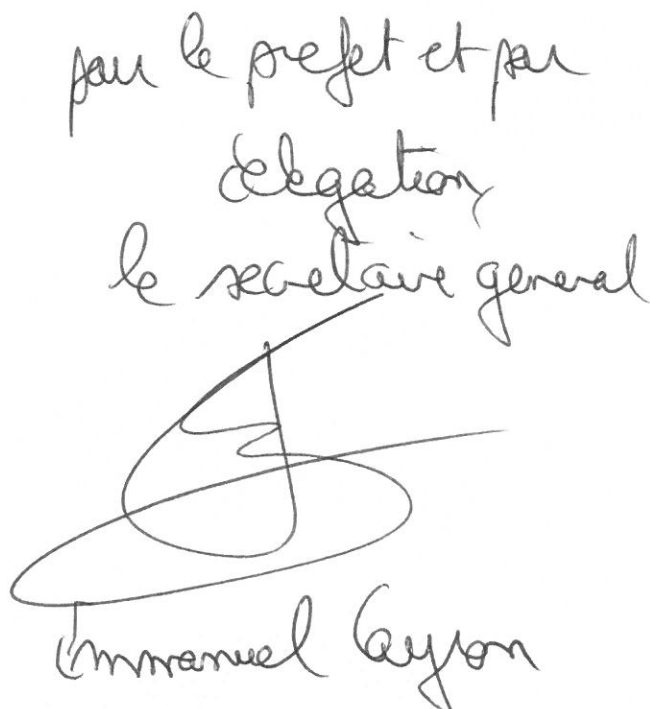 pour le prefet et par
delegation,
le secretaire general
Emmanuel Cayron